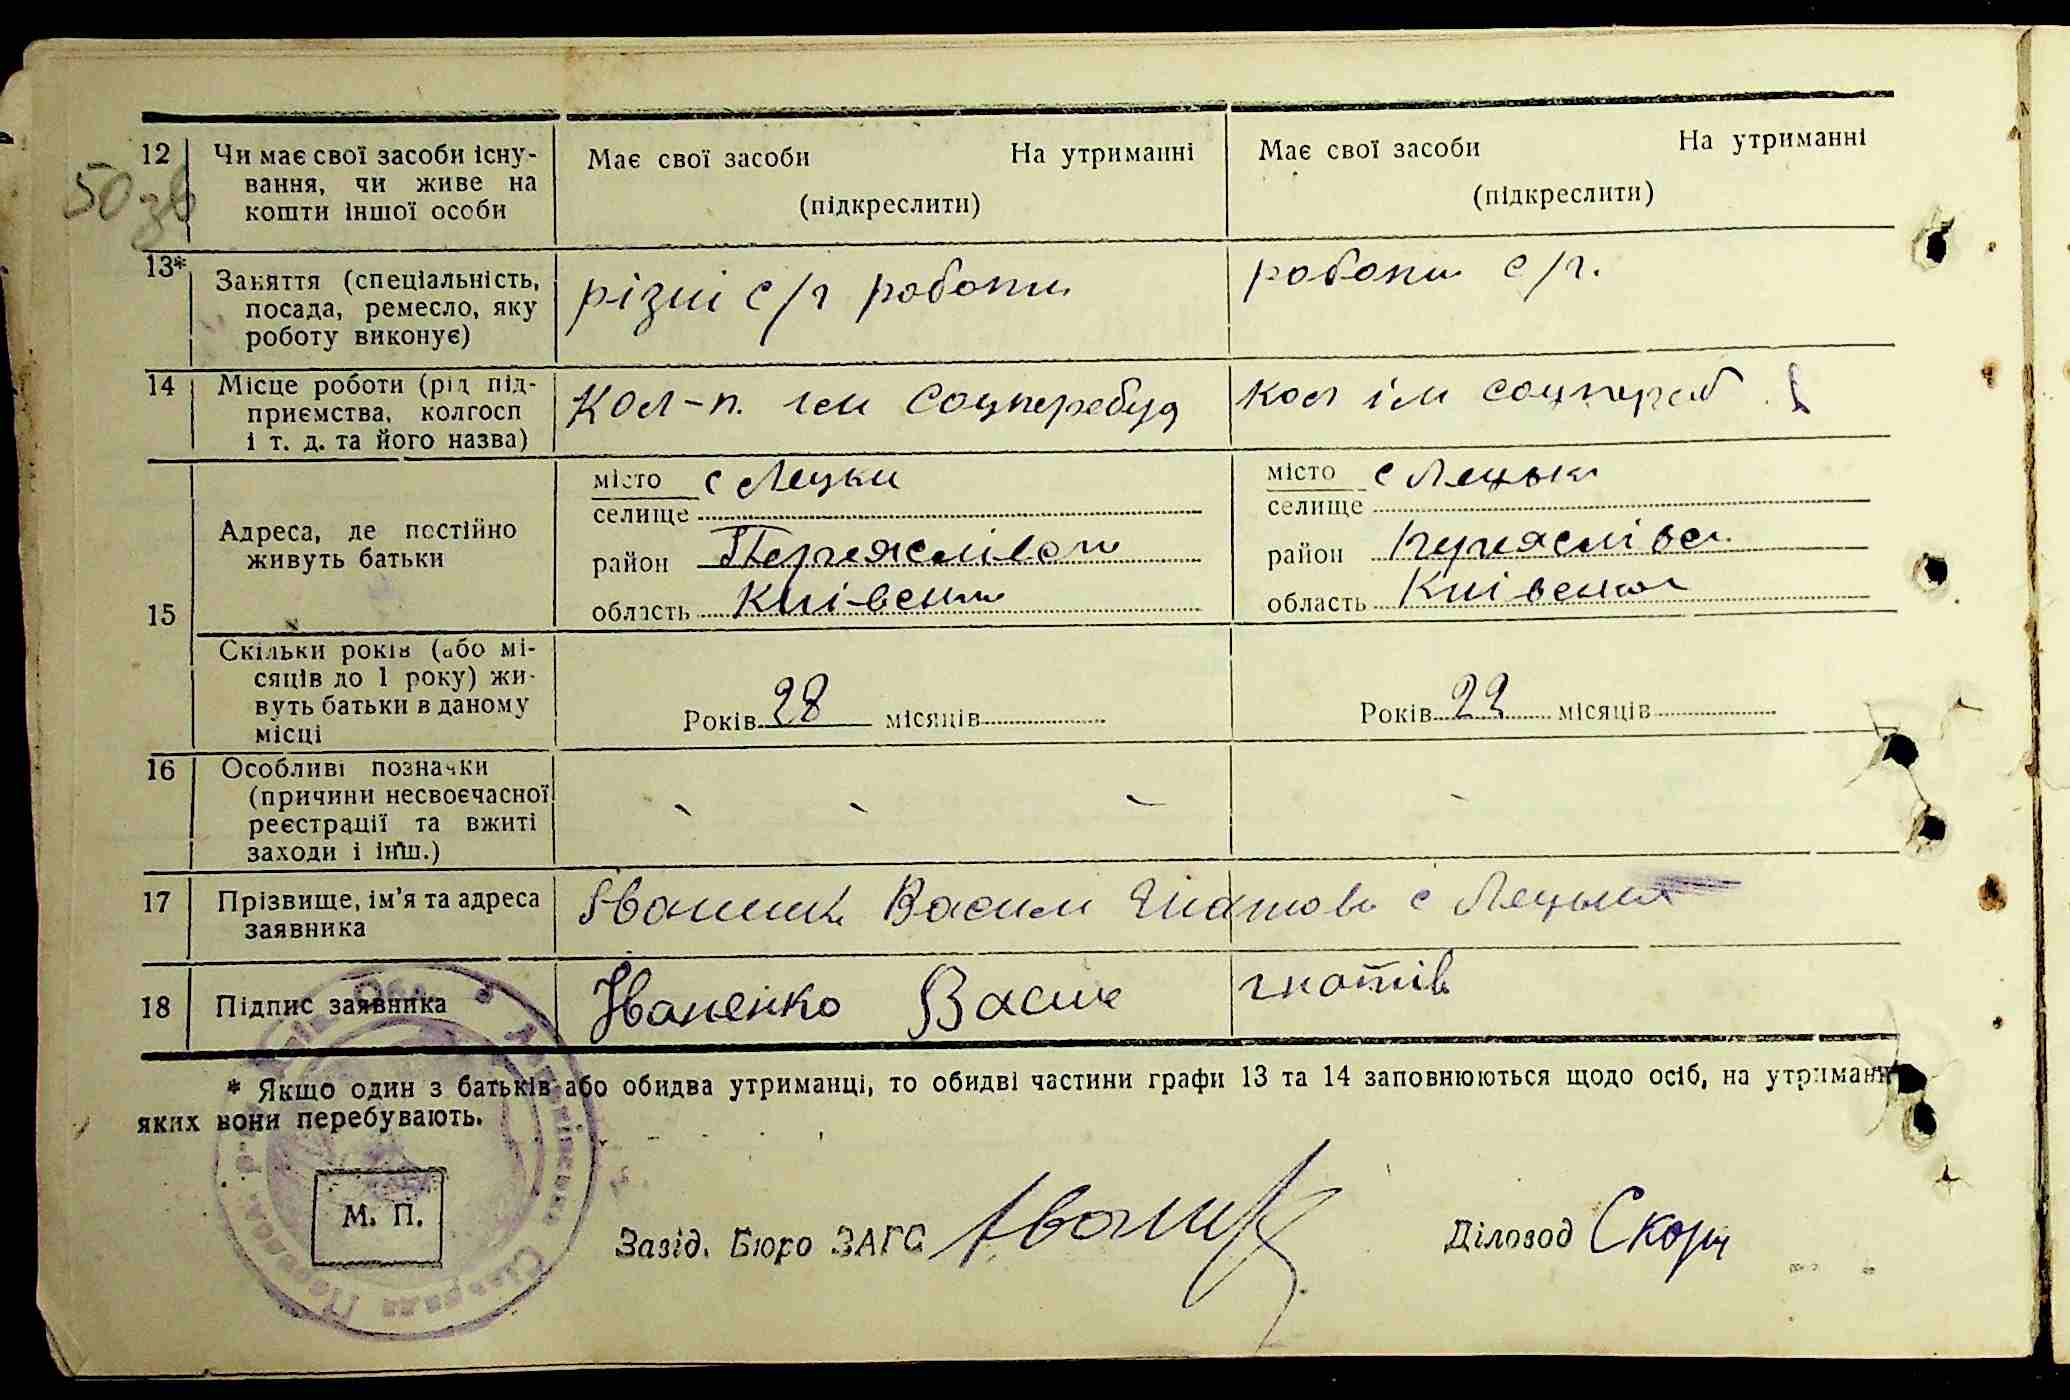 12 Чи має свої засоби існу-
вання, чи живе на
кошти іншої особи
Має свої засоби На утриманні
(підкреслити)
Має свої засоби На утриманні
(підкреслити)
50
13* Заняття (спеціальність,
посада, ремесло, яку
роботу виконує)
різні с/г роботи
роботи с/г.
14 Місце роботи (рід під-
приємства, колгосп
і т. д. та його назва)
Кол-п. ім Соцперебуд
Кол ім соцпереб
15 Адреса, де постійно
живуть батьки
місто с Лецки
селище
район Переяслівськ
область Київськ
місто с Лецьки
селище
район Переяслівс
область Київськ
Скільки років (або мі-
сяців до 1 року) жи-
вуть батьки в даному
місці
Років 28 місяців
Років 22 місяців
16 Особливі позначки
(причини несвоєчасної
реєстрації та вжиті
заходи і інш.)
17 Прізвище, ім'я та адреса
заявника
Василь Гнатов с Лецьки
18 Підпис заявника
Іваненко Васил гнатів
* Якщо один з батьків або обидва утриманці, то обидві частини графи 13 та 14 заповнюються щодо осіб, на утриманні
яких вони перебувають.
М. П.
Завід. Бюро ЗАГС
Діловод Скор